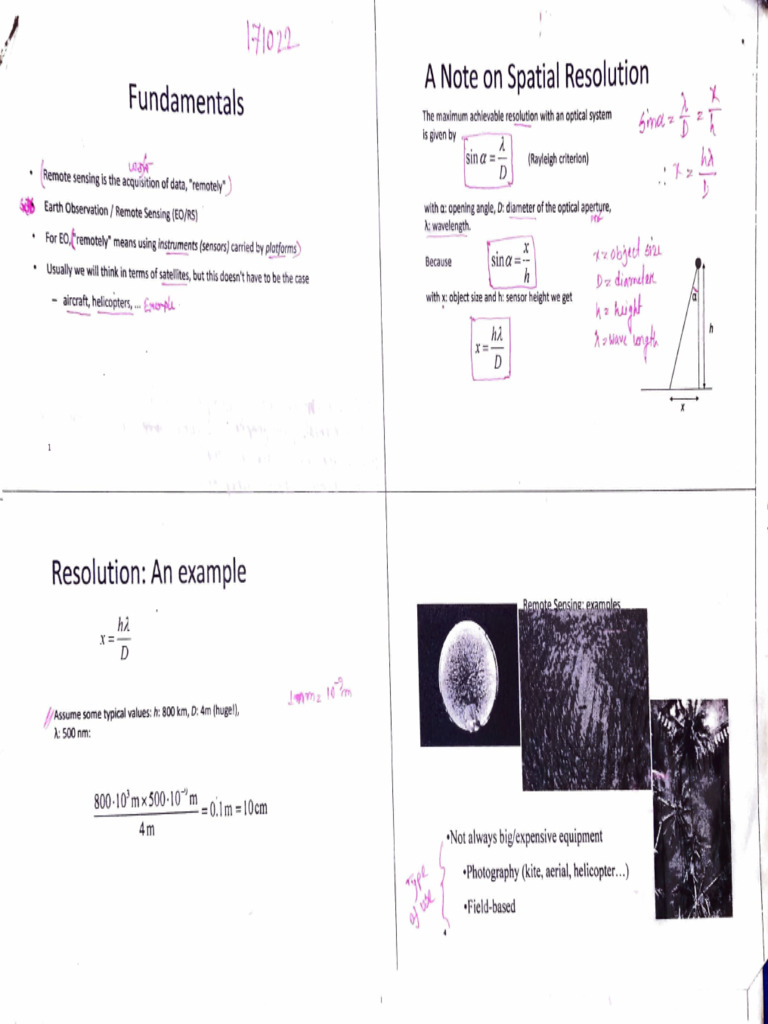 171022
Fundamentals
• Remote sensing is the acquisition of data, "remotely"
Earth Observation / Remote Sensing (EO/RS)
• For EO, "remotely" means using instruments (sensors) carried by platforms
• Usually we will think in terms of satellites, but this doesn't have to be the case
– aircraft, helicopters, ... Example
1
A Note on Spatial Resolution
The maximum achievable resolution with an optical system
is given by
sin α = λ/D (Rayleigh criterion)
sinα = λ/D = x/h
∴ x = hλ/D
with α: opening angle, D: diameter of the optical aperture,
λ: wavelength.
Because sin α = x/h
with x: object size and h: sensor height we get
x = hλ/D
x = object size
D = diameter
h = height
λ = wave length
α
h
x
Resolution: An example
x = hλ/D
1nm = 10⁻⁹m
Assume some typical values: h: 800 km, D: 4m (huge!),
λ: 500 nm:
800·10³m×500·10⁻⁹m
4m
=0.1m=10cm
Remote Sensing: examples
•Not always big/expensive equipment
•Photography (kite, aerial, helicopter…)
•Field-based
Type
of use
4